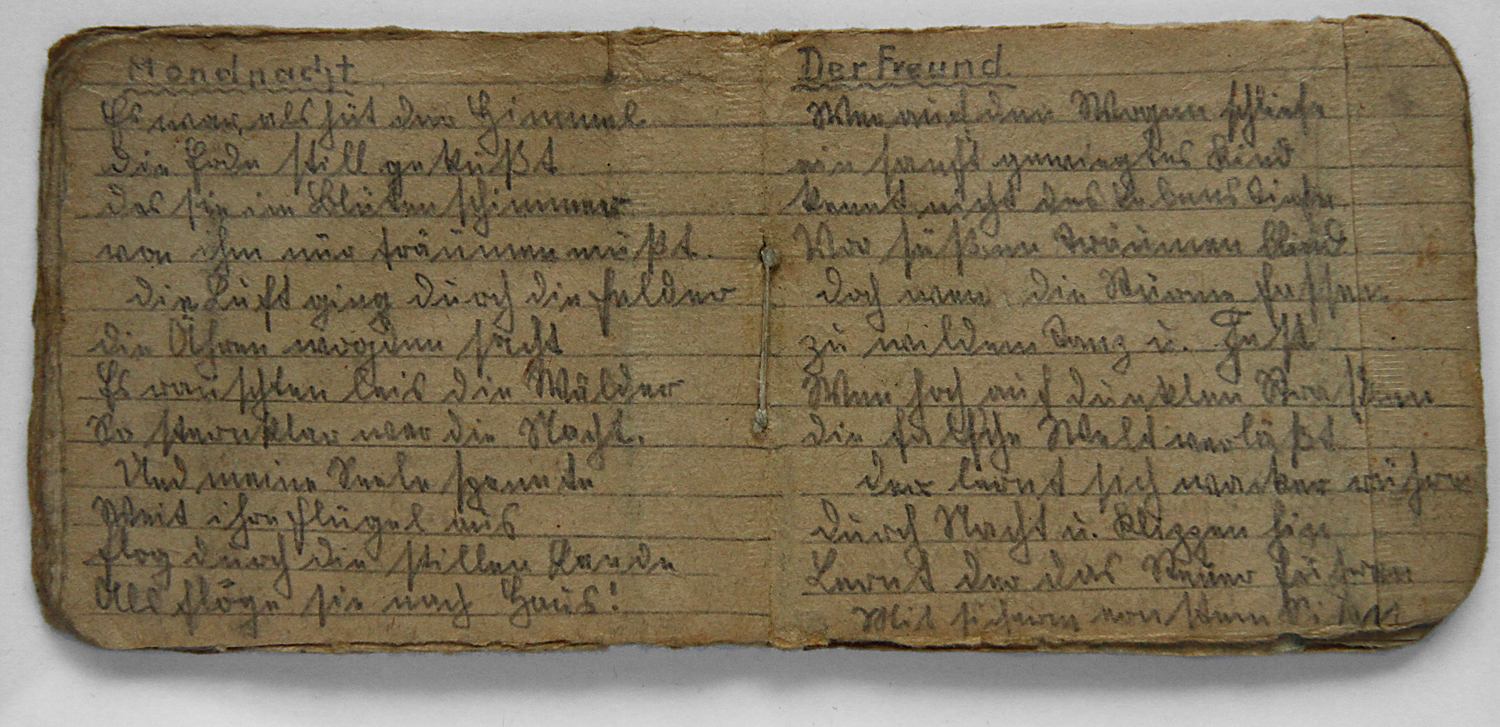 Mondnacht
Es war, als hüt der Himmel
die Erde still geküßt
das sie im Blütenschimmer
von ihm nur träumen müßt.
die Luft ging durch die Felder
die Ähren wogden sacht
Es rauschten leis die Wälder
So sternklar war die Nacht.
Und meine Seele spannte
Weit ihre Flügel aus
flog durch die stillen Lande
Als flöge sie nach Haus!
Der Freund
Wer auf den Wogen schliefe
ein sanft gewiegtes Kind
kennt nicht des Lebens Tiefe
Vor süßem Träumen blind
doch wen die Stürme fassen
zu wildem Tanz u. Fest
Wen hoch auf dunklen Straßen
die falsche Welt verläßt
der lernt sich wacker rühren
durch Nacht u. Klippen hin
Lernt der das Steuer führen
Mit sicherm ernstem Sinn